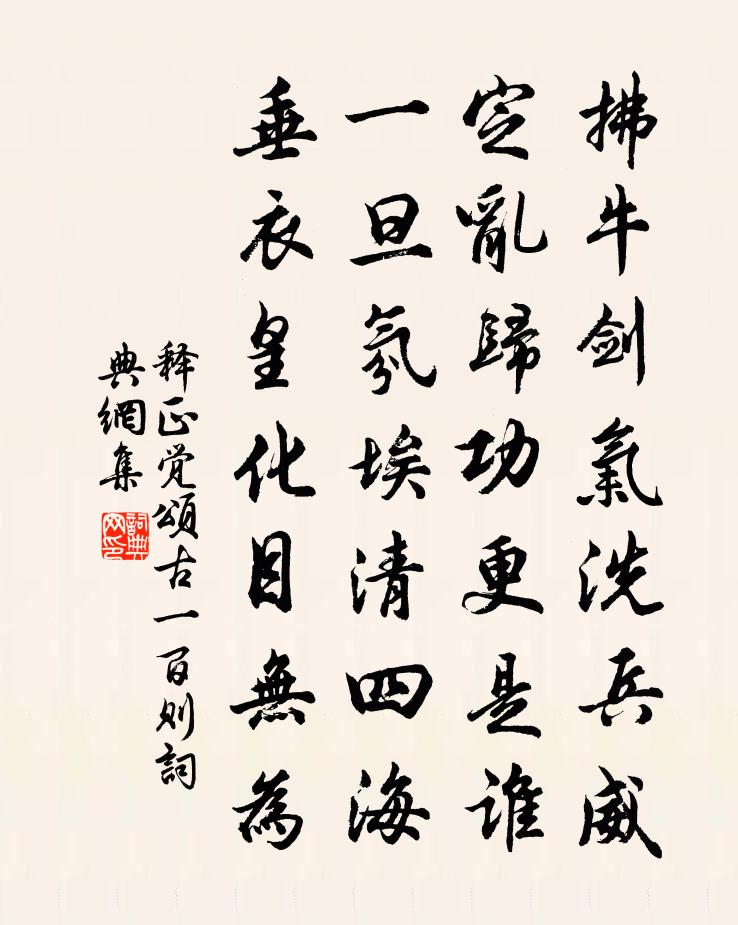 拂牛剑氣洗兵威
定亂歸功更是誰
一旦氛埃清四海
垂衣皇化目無為
释正觉頌古一百则詞
典網集
詞典
网印